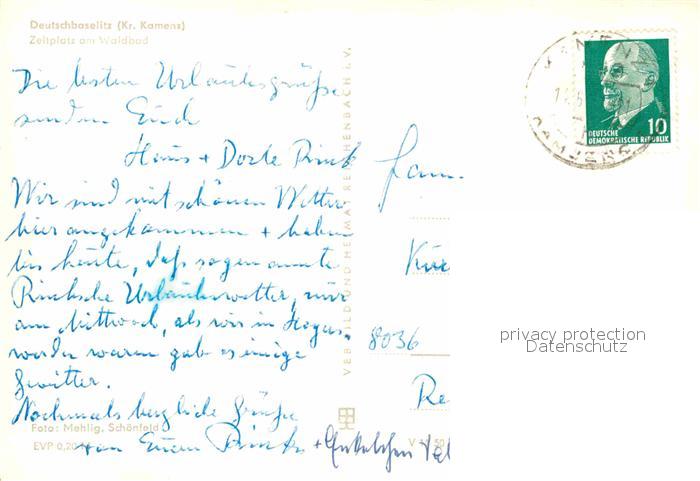 Deutschbaselitz (Kr. Kamenz)
Zeltplatz am Waldbad
Die besten Urlaubsgrüße
senden Euch
Hans + Dorle Rink
Wir sind mit schönem Wetter
hier angekommen + haben
bis heute, das sogenannte
Rinksche Urlaubswetter, nur
am Mittwoch, als wir in Hoyers-
werda waren gab es einige
Gewitter.
Nochmals herzliche Grüße
von Euern Rinks +
Foto: Mehlig, Schönfeld
EVP 0,20
VEB BILD UND HEIMAT REICHENBACH i. V.
DEUTSCHE
DEMOKRATISCHE REPUBLIK
10
KAMENZ
KAMJENC
Fam.
8036
Re
privacy protection
Datenschutz